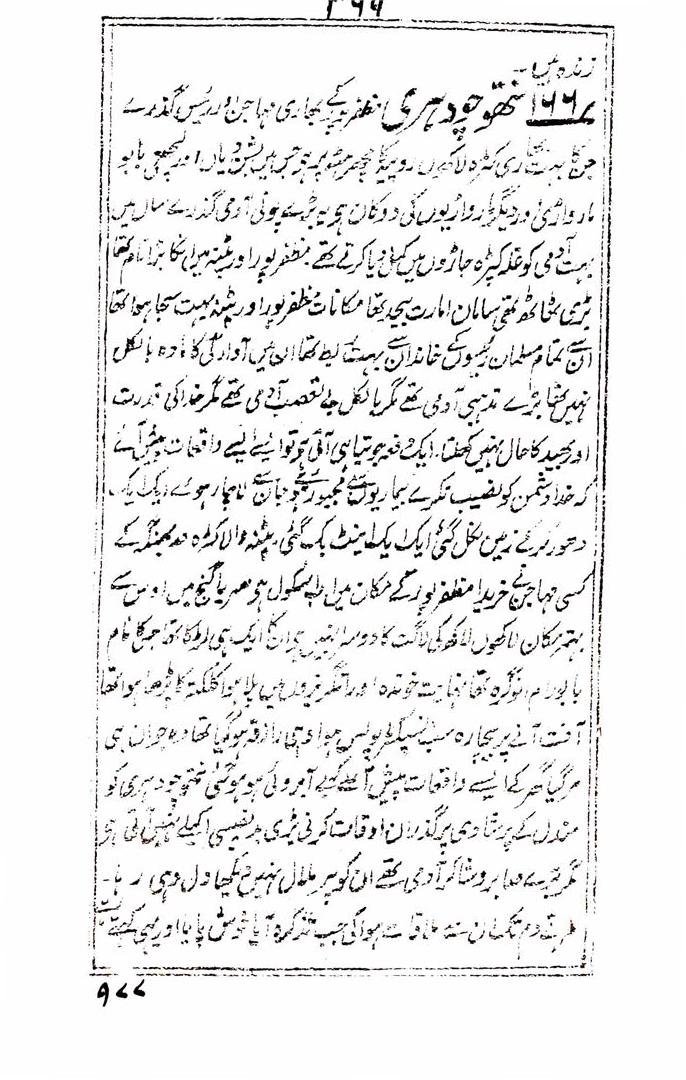 ۳۶۶
زندہ ہیں۔
۱۶۶۸ نتھو چودہری مظفرپور کے بھاری مہاجن اور رئیس گذرے
جن کا بہت بھاری کٹرہ لاکھوں روپیہ کا چھپرہ پر ہو جس میں بشن دیال اور لچھمی بابو
مارواڑی اور دیگر مارواڑیوں کی دوکان ہو یہ بڑے پونی آدمی گذرے سال میں
بہت آدمی کو غلہ کپڑہ جاڑوں میں کمل دیا کرتے تھے مظفرپور اور پٹنہ میں انکا بڑا نام تھا
بڑی ٹھاٹھ تھی سامان امارت بیحد تھا مکانات مظفرپور اور پٹنہ بہت سجا ہوا تھا
ان سے تمام مسلمان رئیسوں کے خاندان سے بہت ربط تھا ان میں آوارگی کا مادہ بالکل
نہیں تھا بڑے مذہبی آدمی تھے مگر بالکل بے تعصب آدمی تھے مگر خدا کی قدرت
اور بھید کا حال نہیں کھلتا۔ ایک دفعہ جو تباہی آئی ہو تو ایسے ایسے واقعات پیش آئے
کہ خدا دشمن کو نصیب نکرے بیماریوں سے مجبور رہے جان سے لاچار ہوے ایک ایک
دھور کرکے زمین نکل گئی ایک ایک اینٹ بک گئی پٹنہ والا کٹرہ دربھنگہ کے
کسی مہاجن نے خریدا مظفرپور کے مکان میں اسکول ہو سریا گنج میں اوس سے
بہتر مکان لاکھوں لاکھ کی لاگت کا دوسرا نہیں ہو ان کا ایک ہی لڑکا تھا جسکا نام
بابو رام تھا نہایت خوندہ اور انگریزوں میں پلا ہوا کلکتہ کا پڑھا ہوا تھا
آفت آنے پر بیچارہ سب انسپکٹر پولس ہوا وہی رازقہ ہو گیا تھا وہ جوان ہی
مرگیا گھر کے ایسے واقعات پیش آئے کہ بے آبروئی ہو ہو گئی نتھو چودہری کو
مندل کے پرشادی پر گذران اوقات کرنی پڑی بدنصیبی اکیلے نہیں آتی ہو
مگر بڑے صابر و شاکر آدمی تھے ان کو پر ملال نہیں دیکھا دل وہی رہا۔
ہر قدم تک ان سے ملاقات ہوا کی جب تذکرہ آیا خوش پایا اور یہی کہتے
۹۷۷